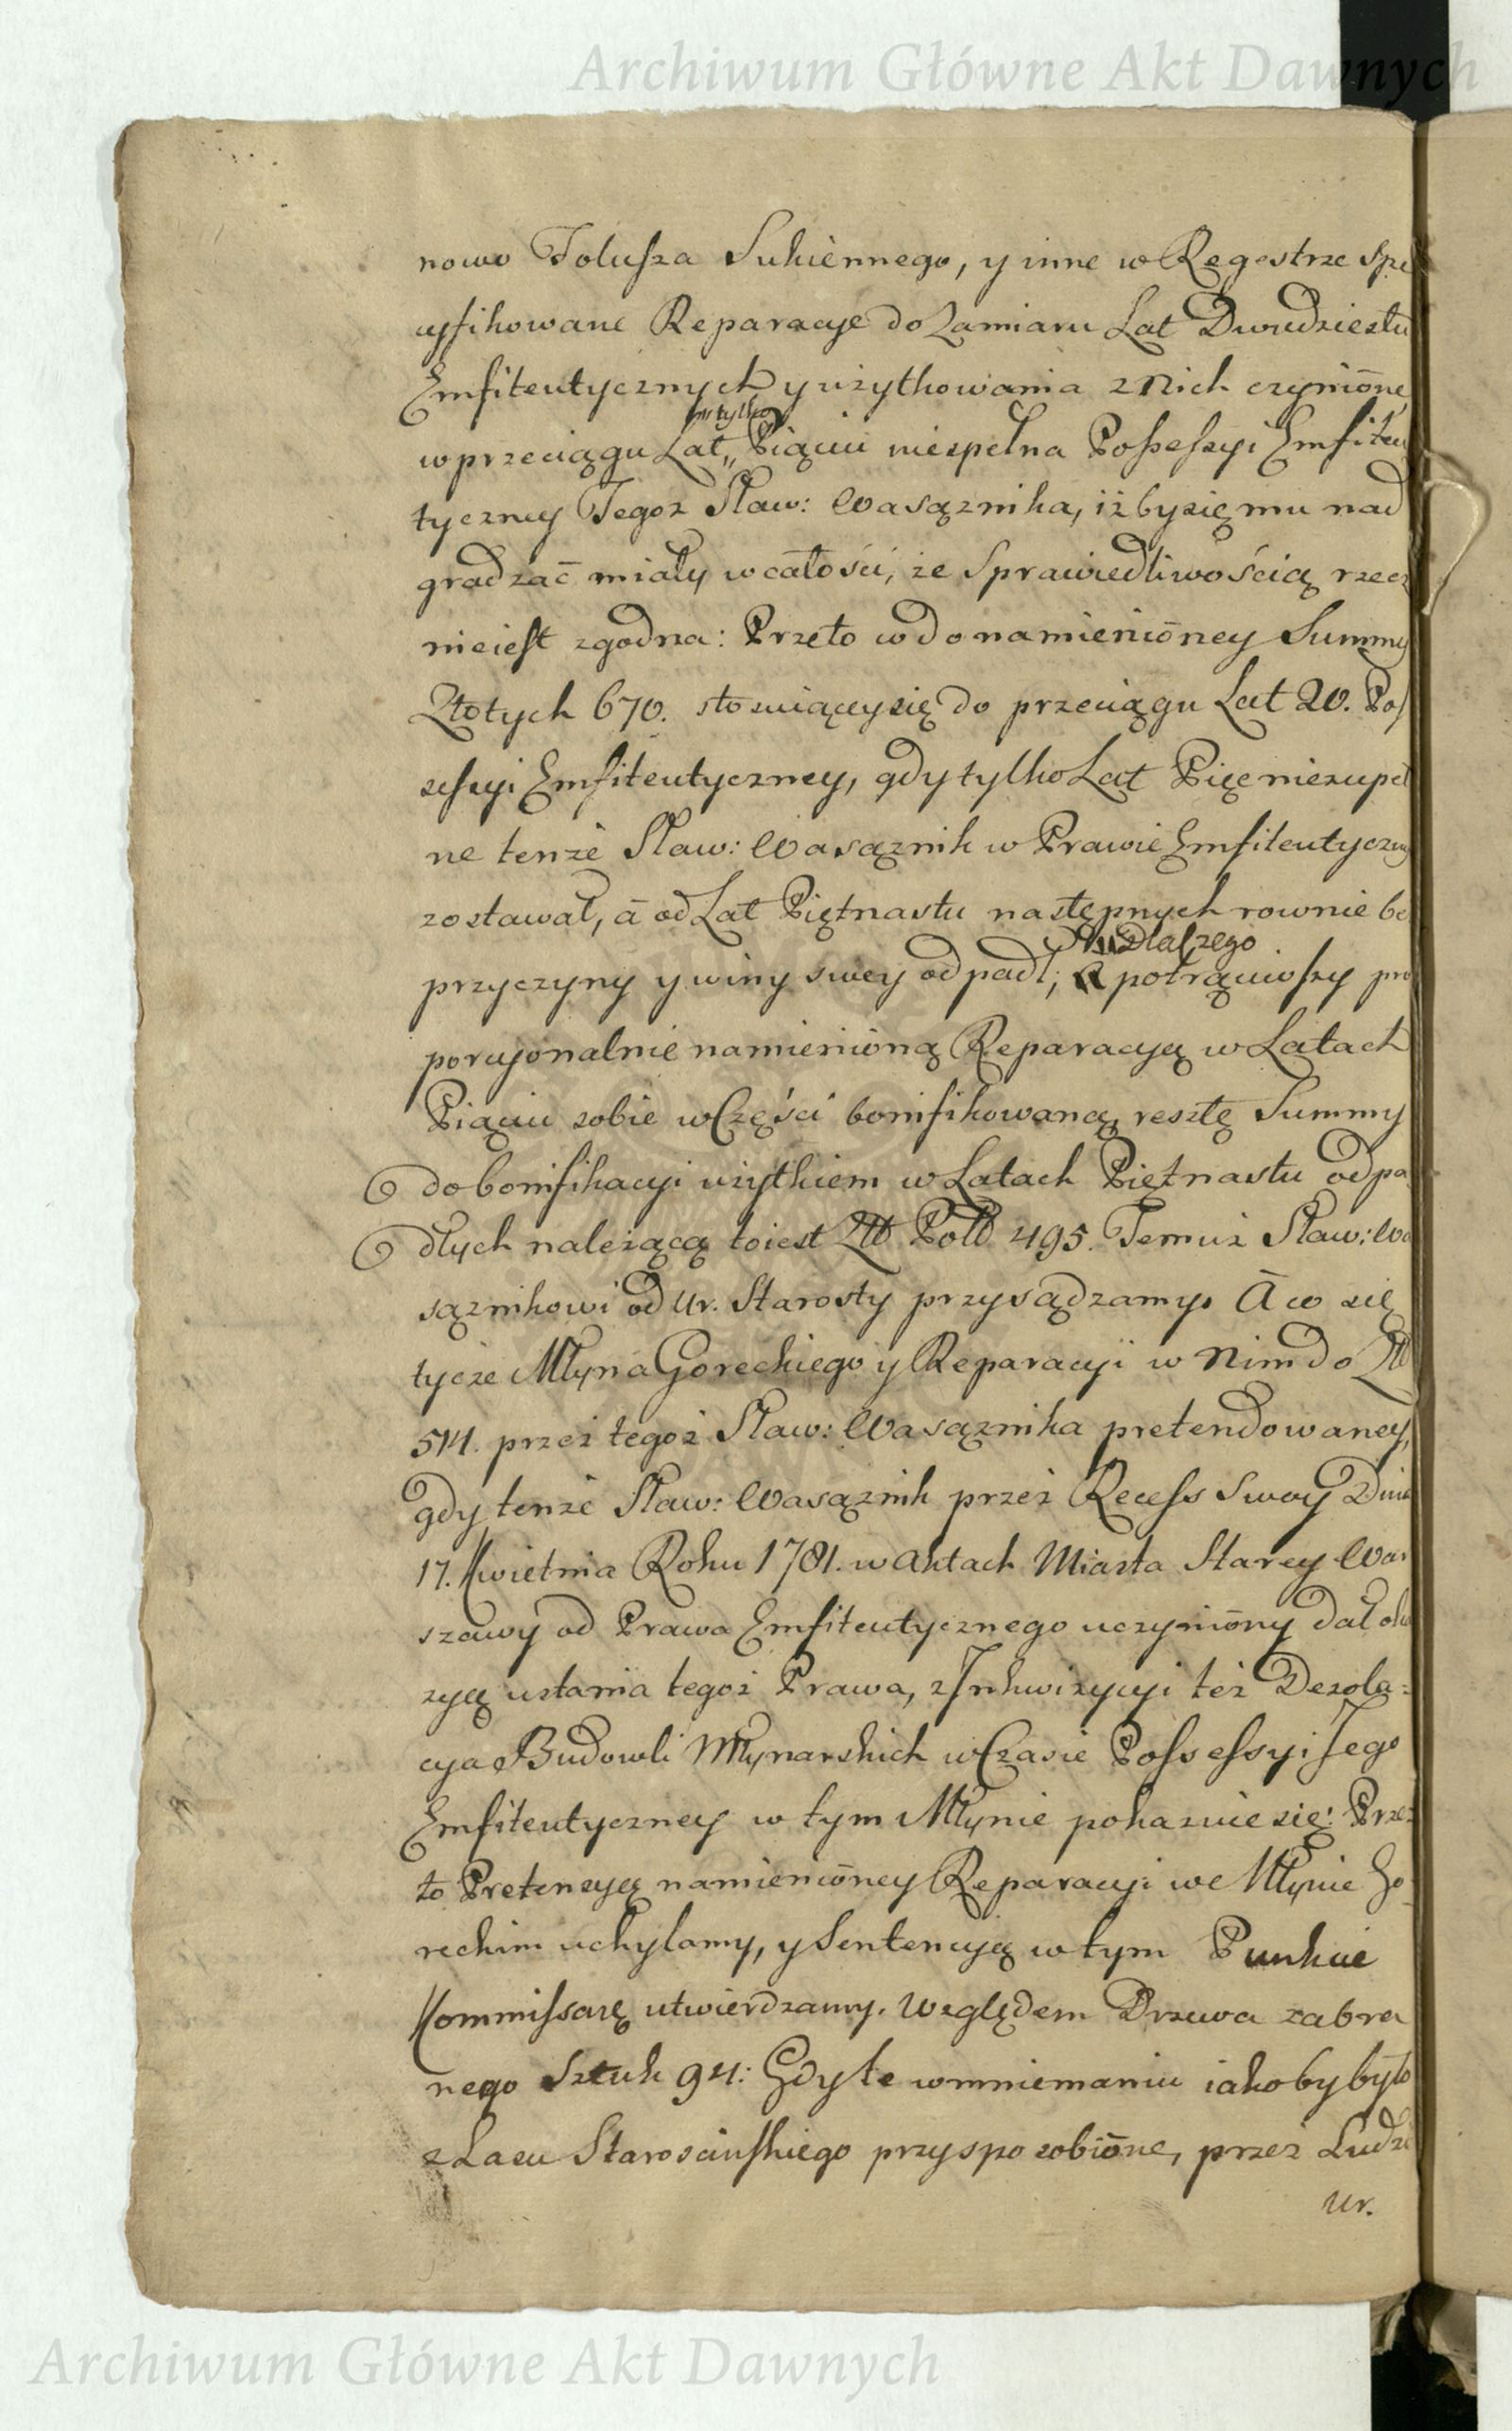 Archiwum Główne Akt Dawnych
nowo Folusza Sukiennego, y inne w Regestrze spe
cyfikowane Reparacye do Zamiaru Lat Dwudziestu
Emfiteutycznych y użytkowania z Nich czynióne,
tylko
w przeciągu Lat,, Piąciu niespełna Possessyi Emfiteu
tyczney Tegoż Sław: Wasążnika, iż by się mu nad
gradzać miały w całości, że Sprawiedliwością rzecz
nieiest zgodna: Przeto w do namienióney Summy
Złotych 670. stosuiącey się do przeciągu Lat 20. Pos
sessyi Emfiteutyczney, gdy tylko Lat Pięć niezupeł
ne tenże Sław: Wasążnik w Prawie Emfiteutyczny
zostawał, á od Lat Piętnastu następnych rownie be
Dlaczego
przyczyny y winy swey odpadł; potrąciwszy pro
porcyonalnie namienióną Reparacyą w Latach
Piąciu sobie w Części bonifikowaną, resztę Summy
do bonifikacyi użytkiem w Latach Piętnastu odpa
dłych należącą to iest Złł Poll 495. Temuż Sław: Wa
sążnikowi od Ur. Starosty przysądzamy. A co się
tycze Młyna Goreckiego y Reparacyi w Nim do Złł
514. przez tegoż Sław: Wasążnika pretendowaney,
gdy tenże Sław: Wasążnik przez Recess Swoy Dnia
17. Kwietnia Roku 1781. w Aktach Miasta Starey War
szawy od Prawa Emfiteutycznego uczynióny dał oka
zyą ustania tegoż Prawa, z Inkwizycyi też Dezola=
cya Budowli Młynarskich w Czasie Possessyi Jego
Emfiteutyczney w tym Młynie pokazuie się: Prze=
to Pretensyą namienióney Reparacyi we Młynie Go
reckim uchylamy, y Sentencyą w tym Punkcie
Kommissarę utwierdzamy. Względem Drzewa zabra
nego Sztuk 94: Gdy te w mniemaniu iakoby było
z Lasu Starosciuskiego przysposobióne, przez Ludzi
Ur.
Archiwum Główne Akt Dawnych